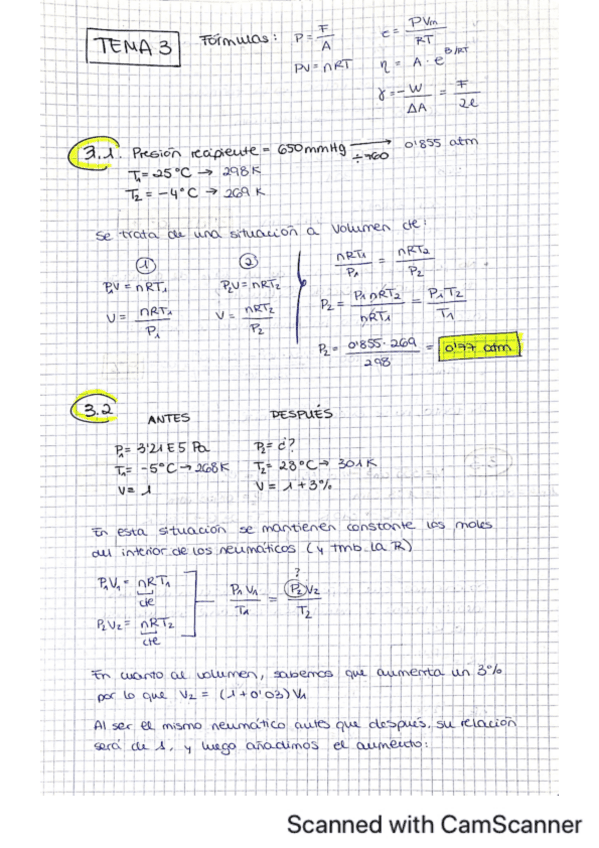 TEMA 3
Fórmulas: P = F/A    c = PVm/RT
PV = nRT    η = A · e^B/RT
γ = -W/ΔA = F/2l
3.1. Presión recipiente = 650 mmHg → ÷760 0'855 atm
T₁ = 25°C → 298K
T₂ = -4°C → 269K
Se trata de una situación a volumen cte:
① ②
P₁V = nRT₁    P₂V = nRT₂
V = nRT₁/P₁    V = nRT₂/P₂
nRT₁/P₁ = nRT₂/P₂
P₂ = P₁nRT₂/nRT₁ = P₁T₂/T₁
P₂ = 0'855 · 269/298 = 0'77 atm
3.2
ANTES    DESPUÉS
P₁ = 3'21 E5 Pa    P₂ = ¿?
T₁ = -5°C → 268K    T₂ = 28°C → 301K
V = 1    V = 1 + 3%
En esta situación se mantienen constante los moles
del interior de los neumáticos (y tmb la R)
P₁V₁ = nRT₁
cte
P₂V₂ = nRT₂
cte
P₁V₁/T₁ = P₂V₂/T₂
?
En cuanto al volumen, sabemos que aumenta un 3%
por lo que V₂ = (1 + 0'03) V₁
Al ser el mismo neumático antes que después, su relación
será de 1, y luego añadimos el aumento:
Scanned with CamScanner